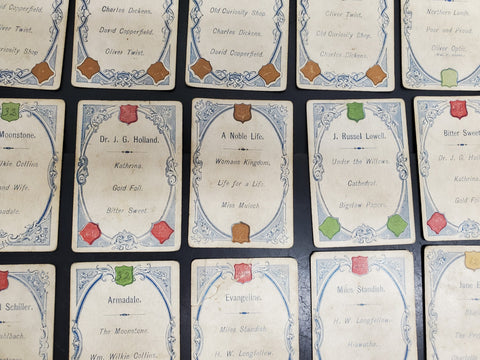 Curiosity Shop.
David Copperfield.
Oliver Twist.
Charles Dickens.
David Copperfield.
Oliver Twist.
Old Curiosity Shop.
Charles Dickens.
David Copperfield.
Oliver Twist.
Old Curiosity Shop.
Charles Dickens.
Northern Lands.
Poor and Proud.
Oliver Optic.
Moonstone.
Wilkie Collins
and Wife.
Armadale.
Dr. J. G. Holland.
Kathrina.
Gold Foil.
Bitter Sweet.
A Noble Life.
Womans Kingdom.
Life for a Life.
Miss Muloch
J. Russel Lowell.
Under the Willows.
Cathedral.
Bigelow Papers.
Bitter Sweet
Dr. J. G. Holland
Kathrina
Gold Foil
Schiller.
Armadale.
The Moonstone.
Wm. Wilkie Collins.
Evangeline.
Miles Standish.
H. W. Longfellow.
Miles Standish.
H. W. Longfellow.
Hiawatha.
Jane